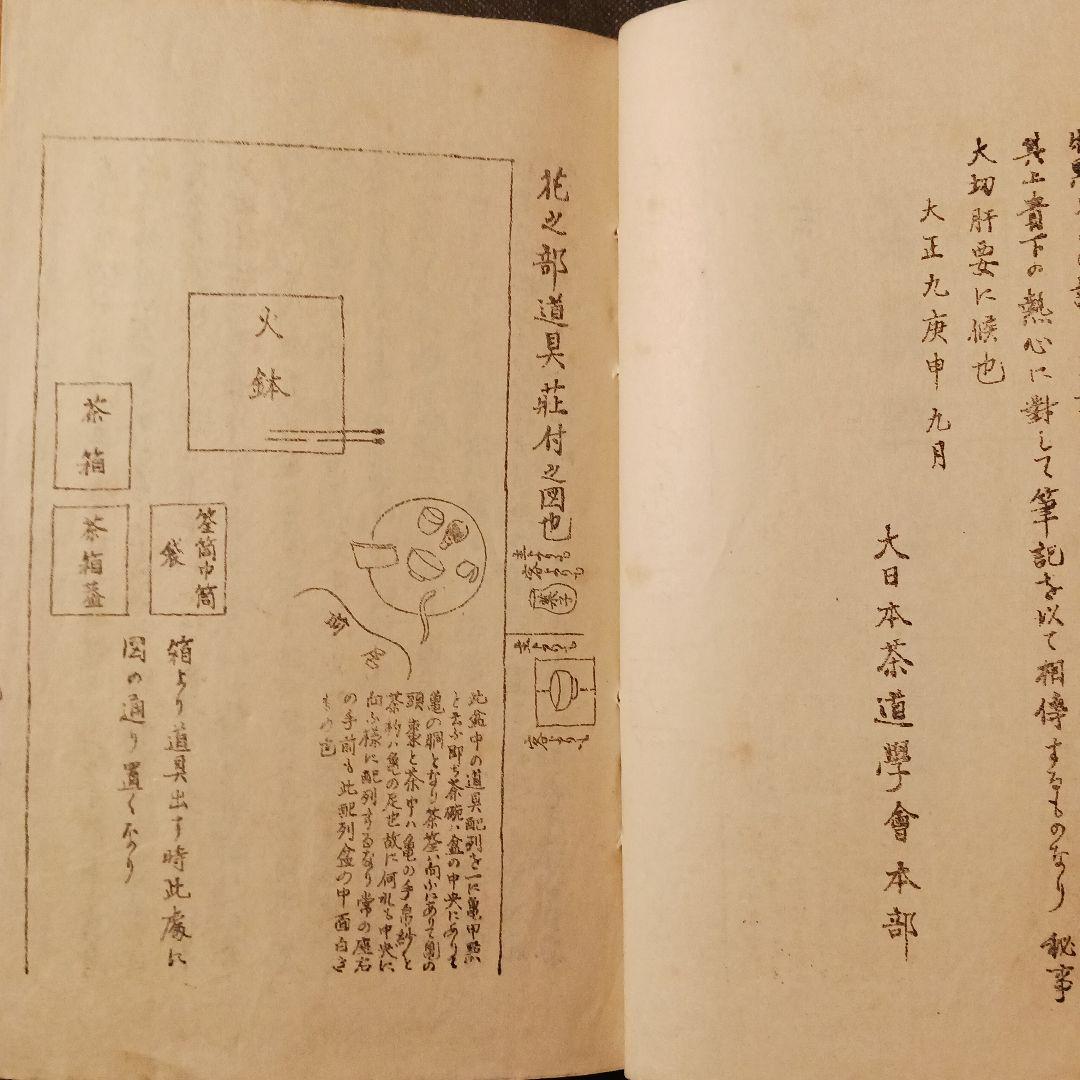 其上貴下の熱心に對して筆記を以て相傳するものなり 秘事
大切肝要に候也
大正九庚申九月
大日本茶道學會本部
花之部道具莊付之図也
主よりも
客よりも
菓子
主よりも
客よりも
火鉢
茶箱
茶箱蓋
筌筒巾筒
袋
此盆中の道具配列を一に亀甲點
と云ふ即ち茶碗ハ盆の中央にありて
亀の胴となり茶筌ハ向ふにありて亀の
頭棗と茶巾ハ亀の手帛紗と
茶杓ハ亀の足也故に何れも中央に
向ふ様に配列するなり常の
の手前も此配列盆の中面白き
もの也
箱より道具出す時此處に
図の通り置くなり